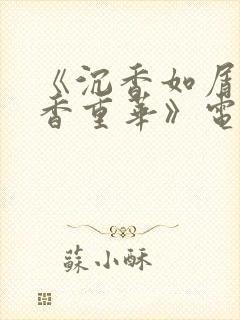 《沉香如屑
香重华》電
蘇小酥